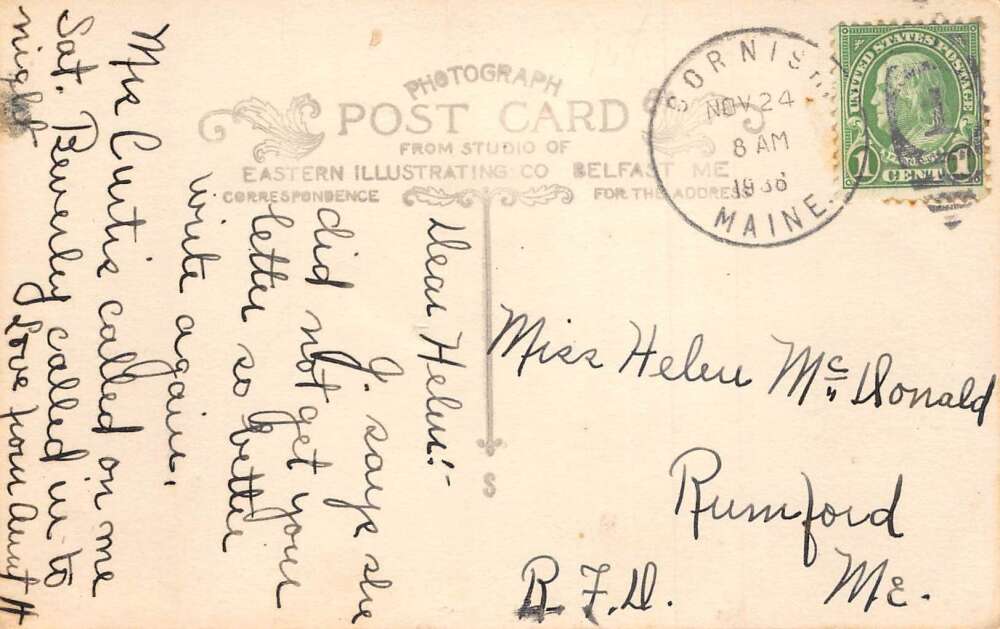 PHOTOGRAPH
POST CARD
FROM STUDIO OF
EASTERN ILLUSTRATING CO BELFAST ME
CORRESPONDENCE
FOR THE ADDRESS
CORNISH
NOV 24
8 AM
1936
MAINE.
UNITED STATES POSTAGE
1 CENT 1
Dear Helen:-
J. says she
did not get your
letter so better
write again.
Mr Curtis called on me
Sat. Beverly called in to
night
Love from Aunt H
Miss Helen McDonald
Rumford
R.F.D. ME.
S